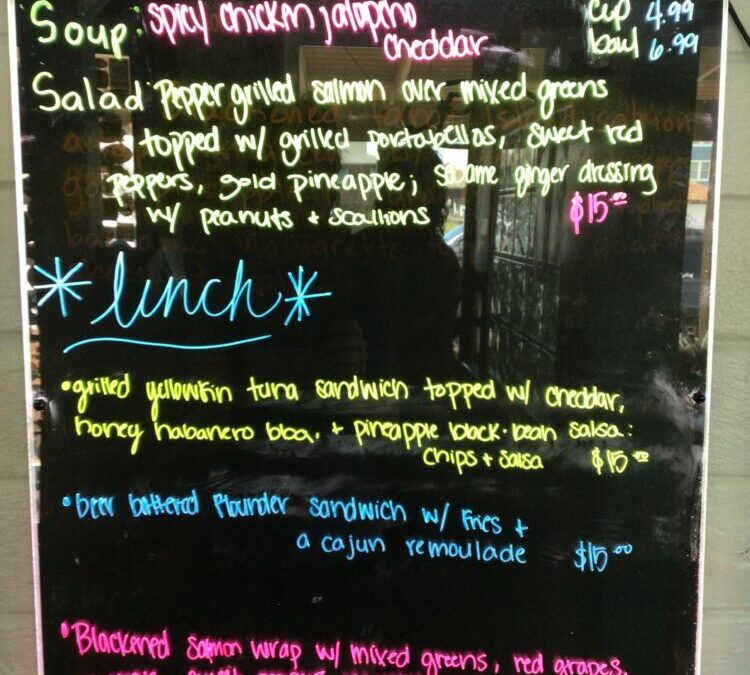 Soup: spicy chicken jalapeno cup 4.99
cheddar bowl 6.99
Salad Pepper grilled salmon over mixed greens
topped w/ grilled portabellos, sweet red
peppers, gold pineapple; sesame ginger dressing
w/ peanuts + scallions $15.00
*lunch*
•grilled yellowfin tuna sandwich topped w/ cheddar,
honey habanero bbq, + pineapple black-bean salsa:
chips + salsa $15.00
•beer battered flounder sandwich w/ fries +
a cajun remoulade $15.00
•Blackened salmon wrap w/ mixed greens, red grapes,